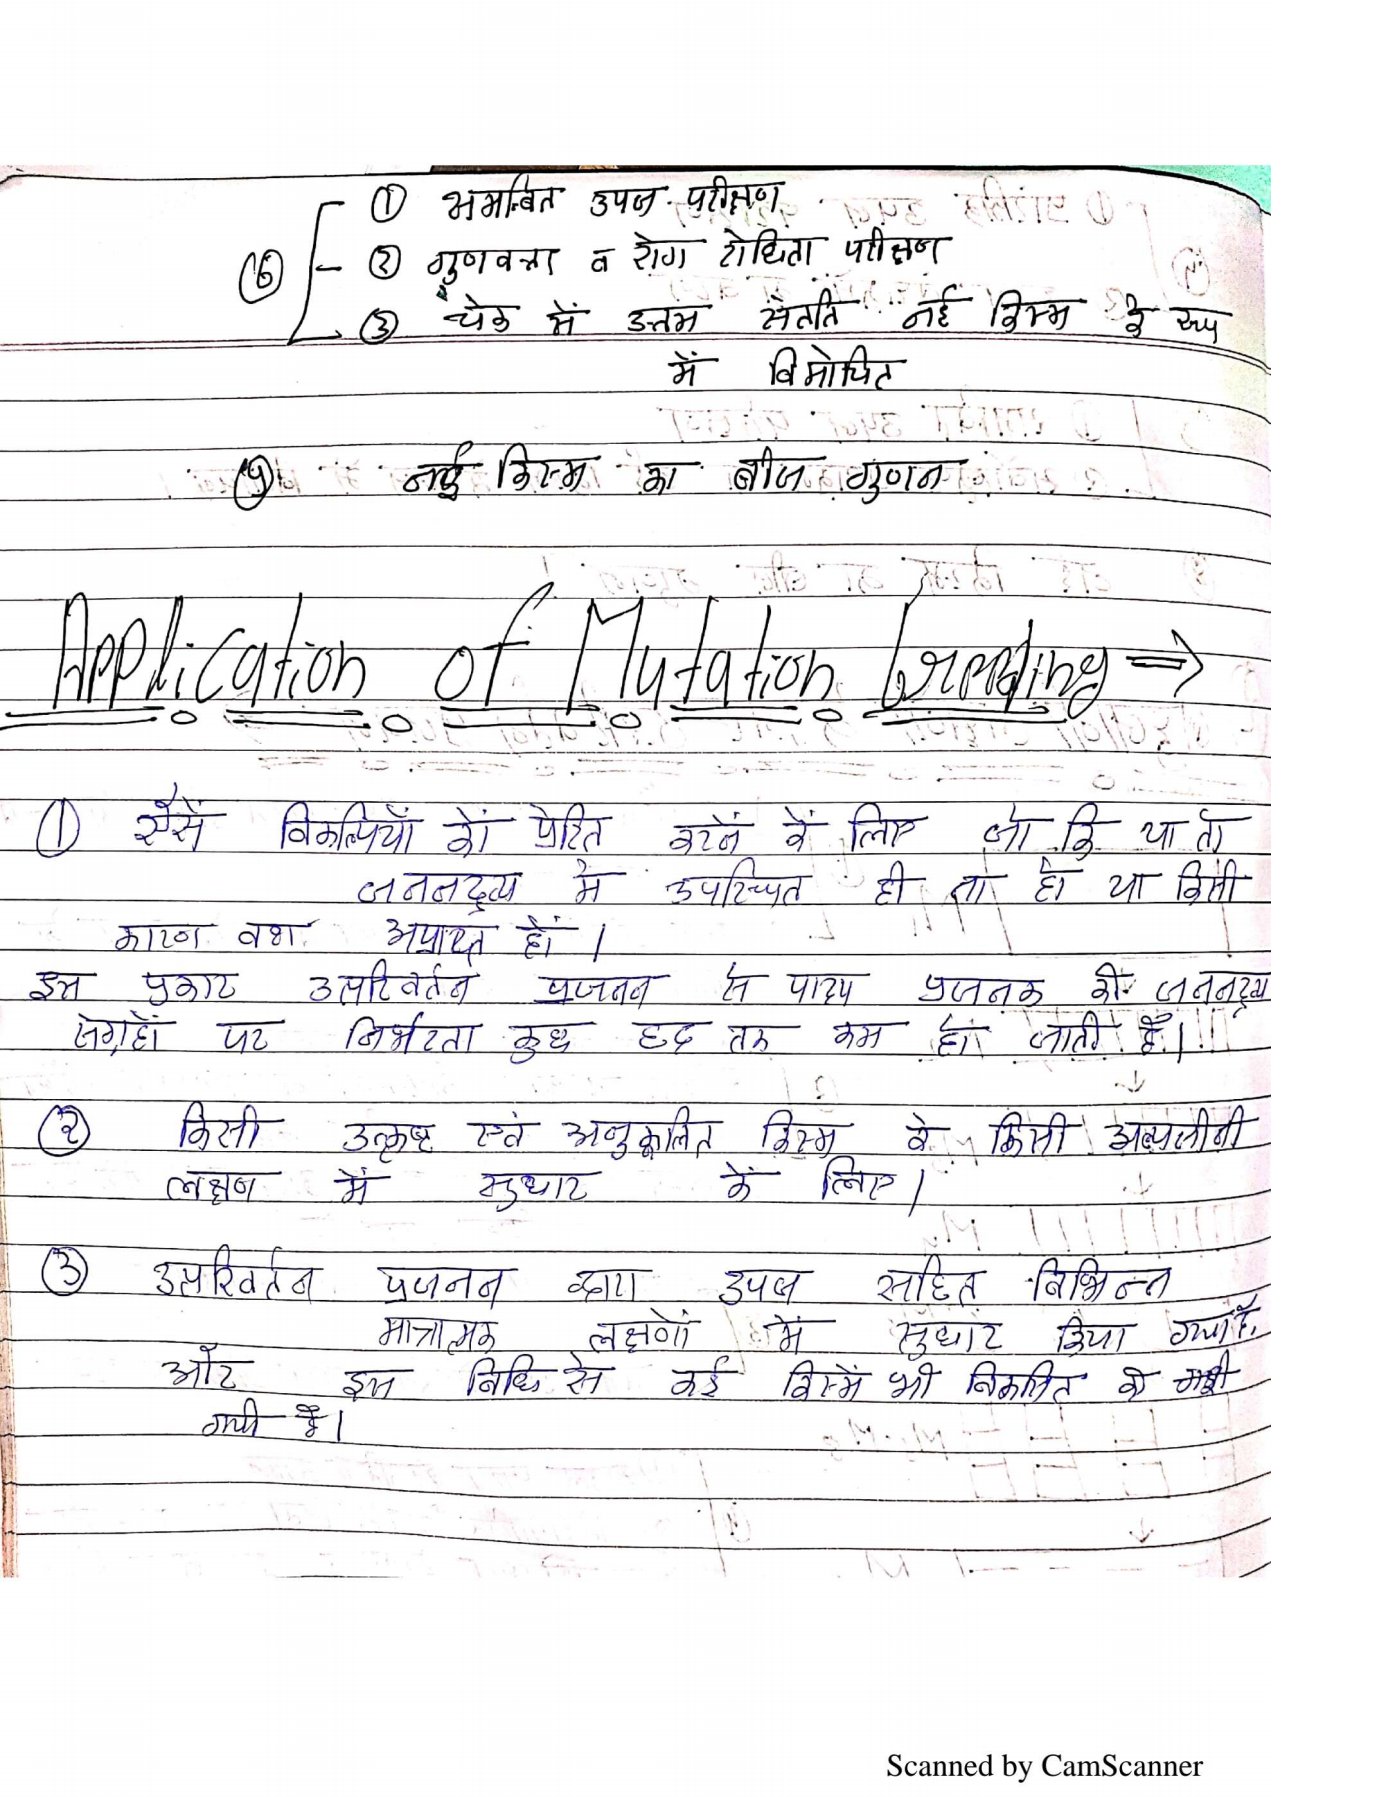 ① समन्वित उपज परीक्षण
⑥ ② गुणवत्ता व रोग रोधिता परीक्षण
③ चेक में उत्तम संतति नई किस्म के रूप
में विमोचित
नई किस्म का बीज गुणन
Application of Mutation breeding ⇒
① ऐसें विकल्पियों कों प्रेरित करनें कें लिए जो कि या तो
जननद्रव्य में उपस्थित ही ना हो या किसी
कारण वश अप्राप्त हों।
इस प्रकार उत्परिवर्तन प्रजनन से पादप प्रजनक की जननद्रव्य
संग्रहों पर निर्भरता कुछ हद तक कम हो जाती हैं।
② किसी उत्कृष्ट एवं अनुकूलित किस्म के किसी अल्पजीनी
लक्षण में सुधार कें लिए।
③ उत्परिवर्तन प्रजनन द्वारा उपज सहित विभिन्न
मात्रात्मक लक्षणों में सुधार किया गया हैं,
और इस विधि से कई किस्में भी विकसित की
गयी हैं।
Scanned by CamScanner